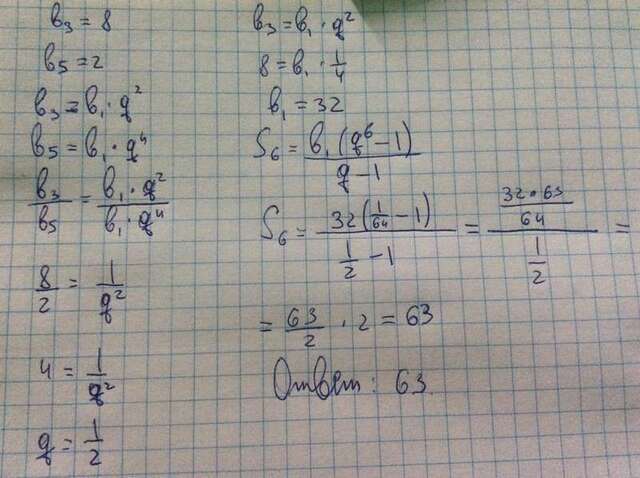 в₃ = 8
в₅ = 2
в₃ = в₁ · q²
в₅ = в₁ · q⁴
в₃/в₅ = в₁ · q²/в₁ · q⁴
8/2 = 1/q²
4 = 1/q²
q = 1/2
в₃ = в₁ · q²
8 = в₁ · 1/4
в₁ = 32
S₆ = в₁ (q⁶ - 1)/q - 1
S₆ = 32 (1/64 - 1)/1/2 - 1 = 32 · 63/64/1/2 =
= 63/2 · 2 = 63
Ответ: 63.